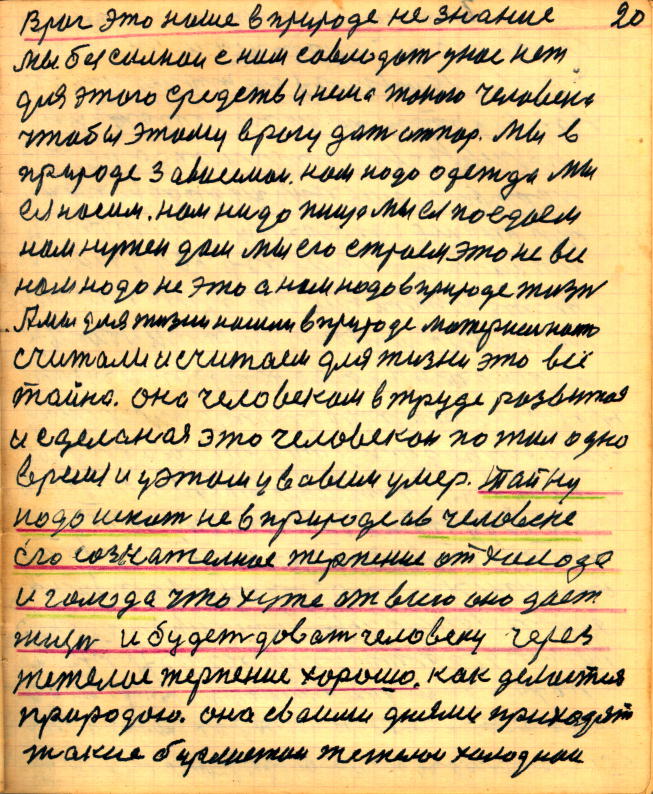 Враг это наше в природе не знание 20
мы бессилнаи с ним совлодат унас нет
для этого средств и нема токого человека
чтобы этому врагу дат отпор. Мы в
природе зависемаи. нам надо одежда мы
ея носим. нам надо пища мы ея поедаем
нам нужен дом мы его строем это не все
нам надо не это а нам надо в природе жизн
Амы для жизни нашли в природе материалност
считали и считаем для жизни это всё
тайна. она человеком в труде развитая
и сделаная это человеком по том одно
время и
умер. тайну
надо искат не в природе ав человеке
его сознателное терпение от холода
и голода что хуже от всего оно дает
жизн и будет доват человеку через
тежелое терпение хорошо. как делается
природою. она сваими днями приходят
такие тежелаи холоднаи